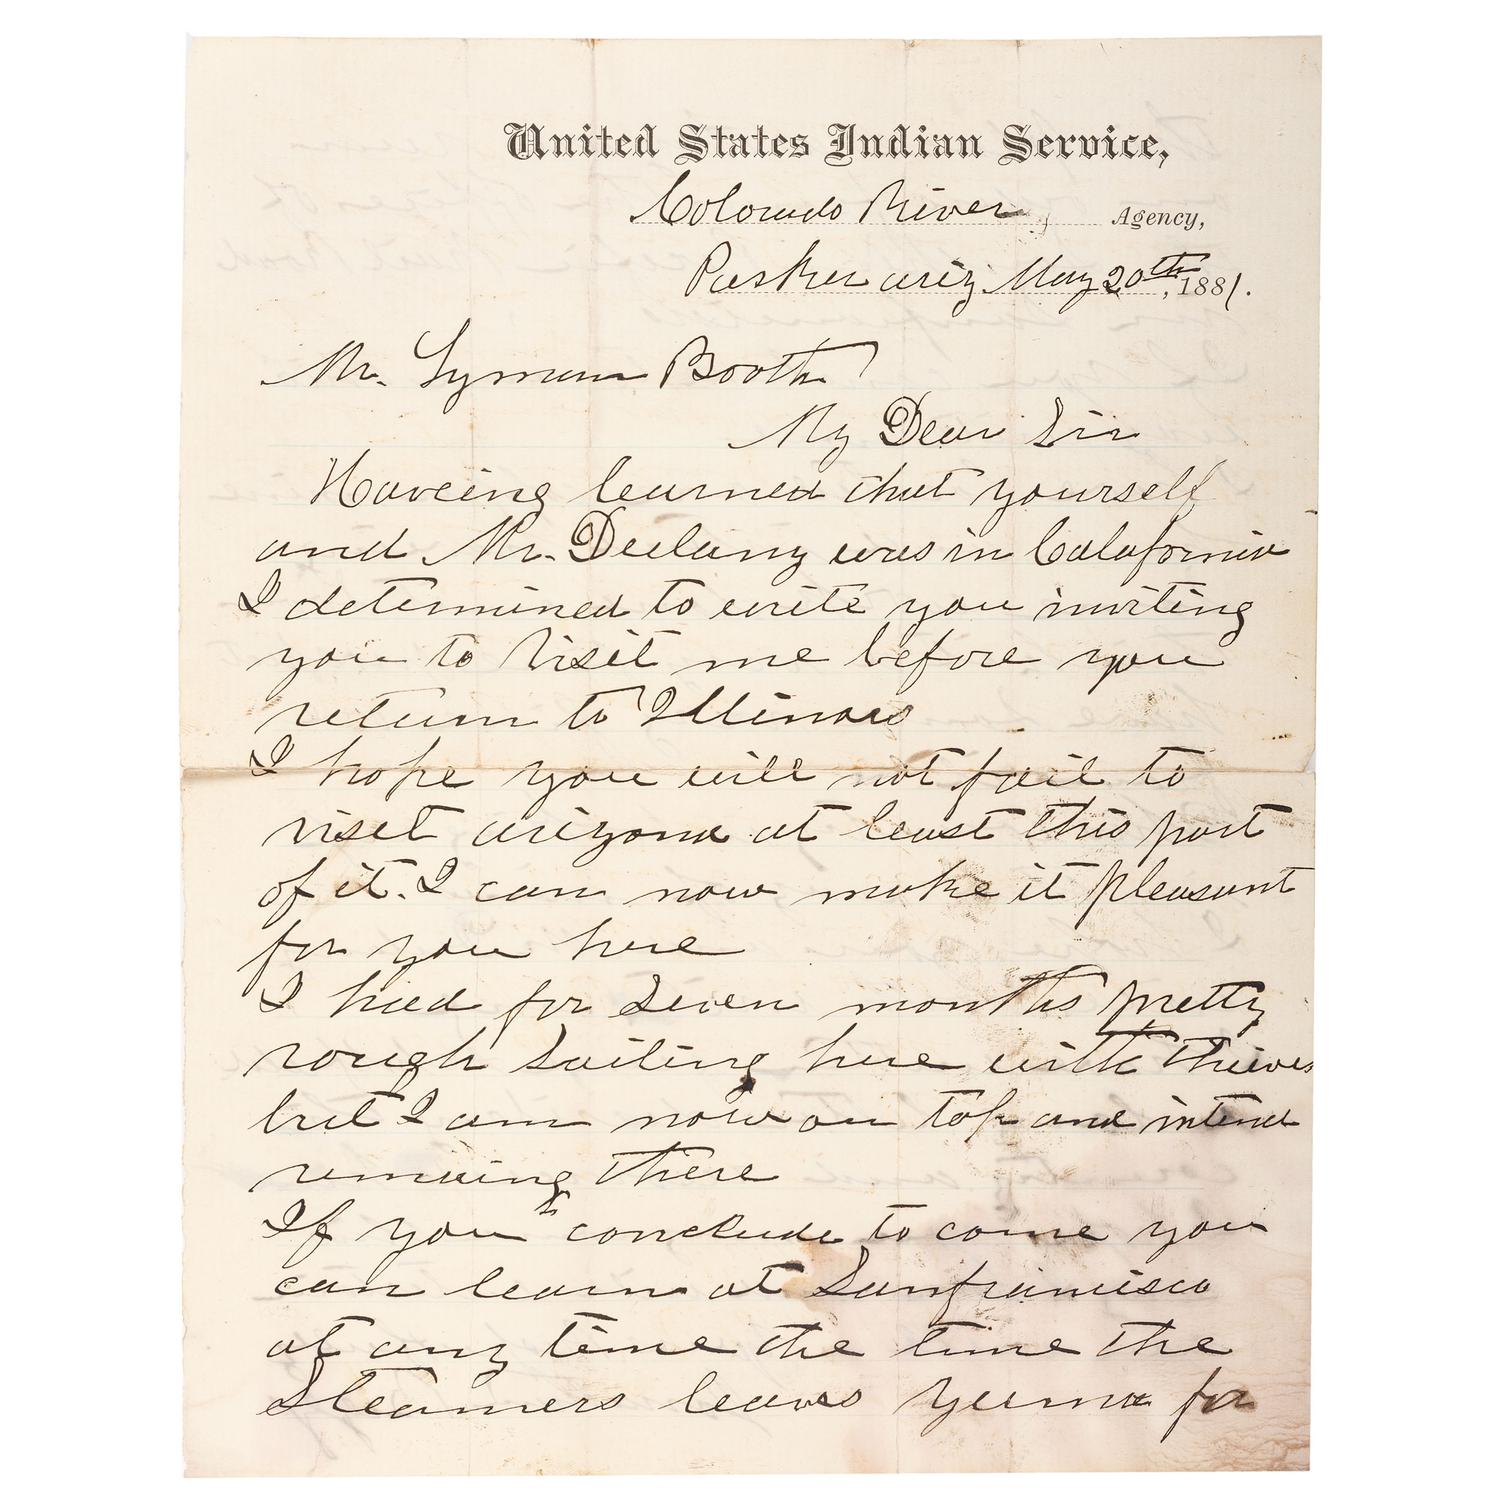 United States Indian Service,
Colorado River, Agency,
Parker ariz. May 20th, 1881.
Mr. Lyman Booth
My Dear Sir
Haveing learned that yourself
and Mr. Deelany was in Calafornia
I determined to write you inviting
you to Viset me before you
return to Illinois
I hope you will not fail to
viset arizona at least this part
of it. I can now make it pleasant
for you here
I had for Seven months pretty
rough Sailing here with thieves
but I am now on top and intend
remaing there
If you conclude to come you
can learn at Sanfrancisco
at any time the time the
Steamers leaves Yuma for